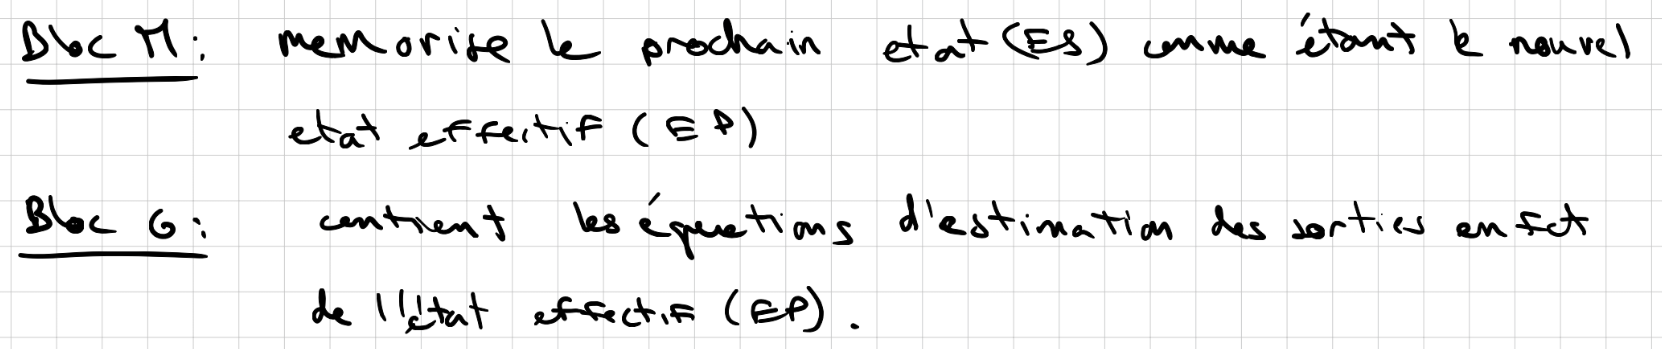 Bloc M: memorise le prochain etat (ES) comme étant le nouvel
etat effectif (EP)
Bloc G: contient les équations d'estimation des sorties en fct
de l'état effectif (EP).